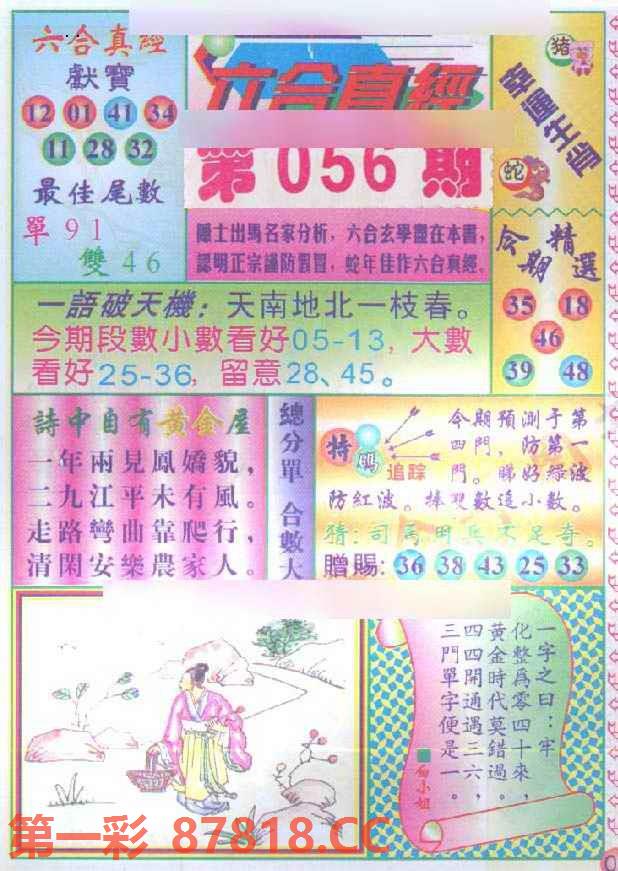 六合真經
獻寶
12 01 41 34
11 28 32
最佳尾數
單91
雙46
六合真經
第056期
隱士出馬名家分析，六合玄學盡在本書，
認明正宗謹防假冒，蛇年佳作六合真經。
豬
蛇
今期精選
35 18
46
39 48
一語破天機：天南地北一枝春。
今期段數小數看好05-13，大數
看好25-36，留意28、45。
詩中自有黃金屋
一年兩見鳳嬌貌，
二九江平未有風。
走路彎曲靠爬行，
清閑安樂農家人。
總分單 合數大
特碼
追踪
今期預測于第
四門，防第一
門。睇好綠波
防紅波。捧雙數追小數。
猜：司馬用兵不足奇。
贈賜：36 38 43 25 33
一字之曰：牢
化整為零四十來，
黃金時代莫錯過。
四四開通遇三六，
三門單字便是一。
白小姐
第一彩 87818.CC